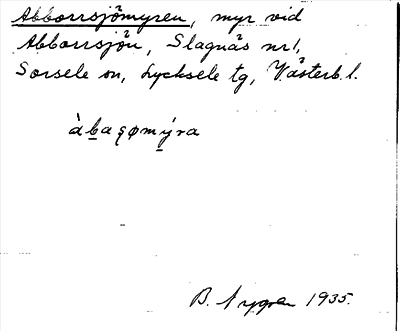 Abborrsjömyren, myr vid
Abborrsjön, Slagnäs nr 1,
Sorsele sn, Lycksele tg, Västerb. l.
àbaʂømýra
B. Nygren 1935.